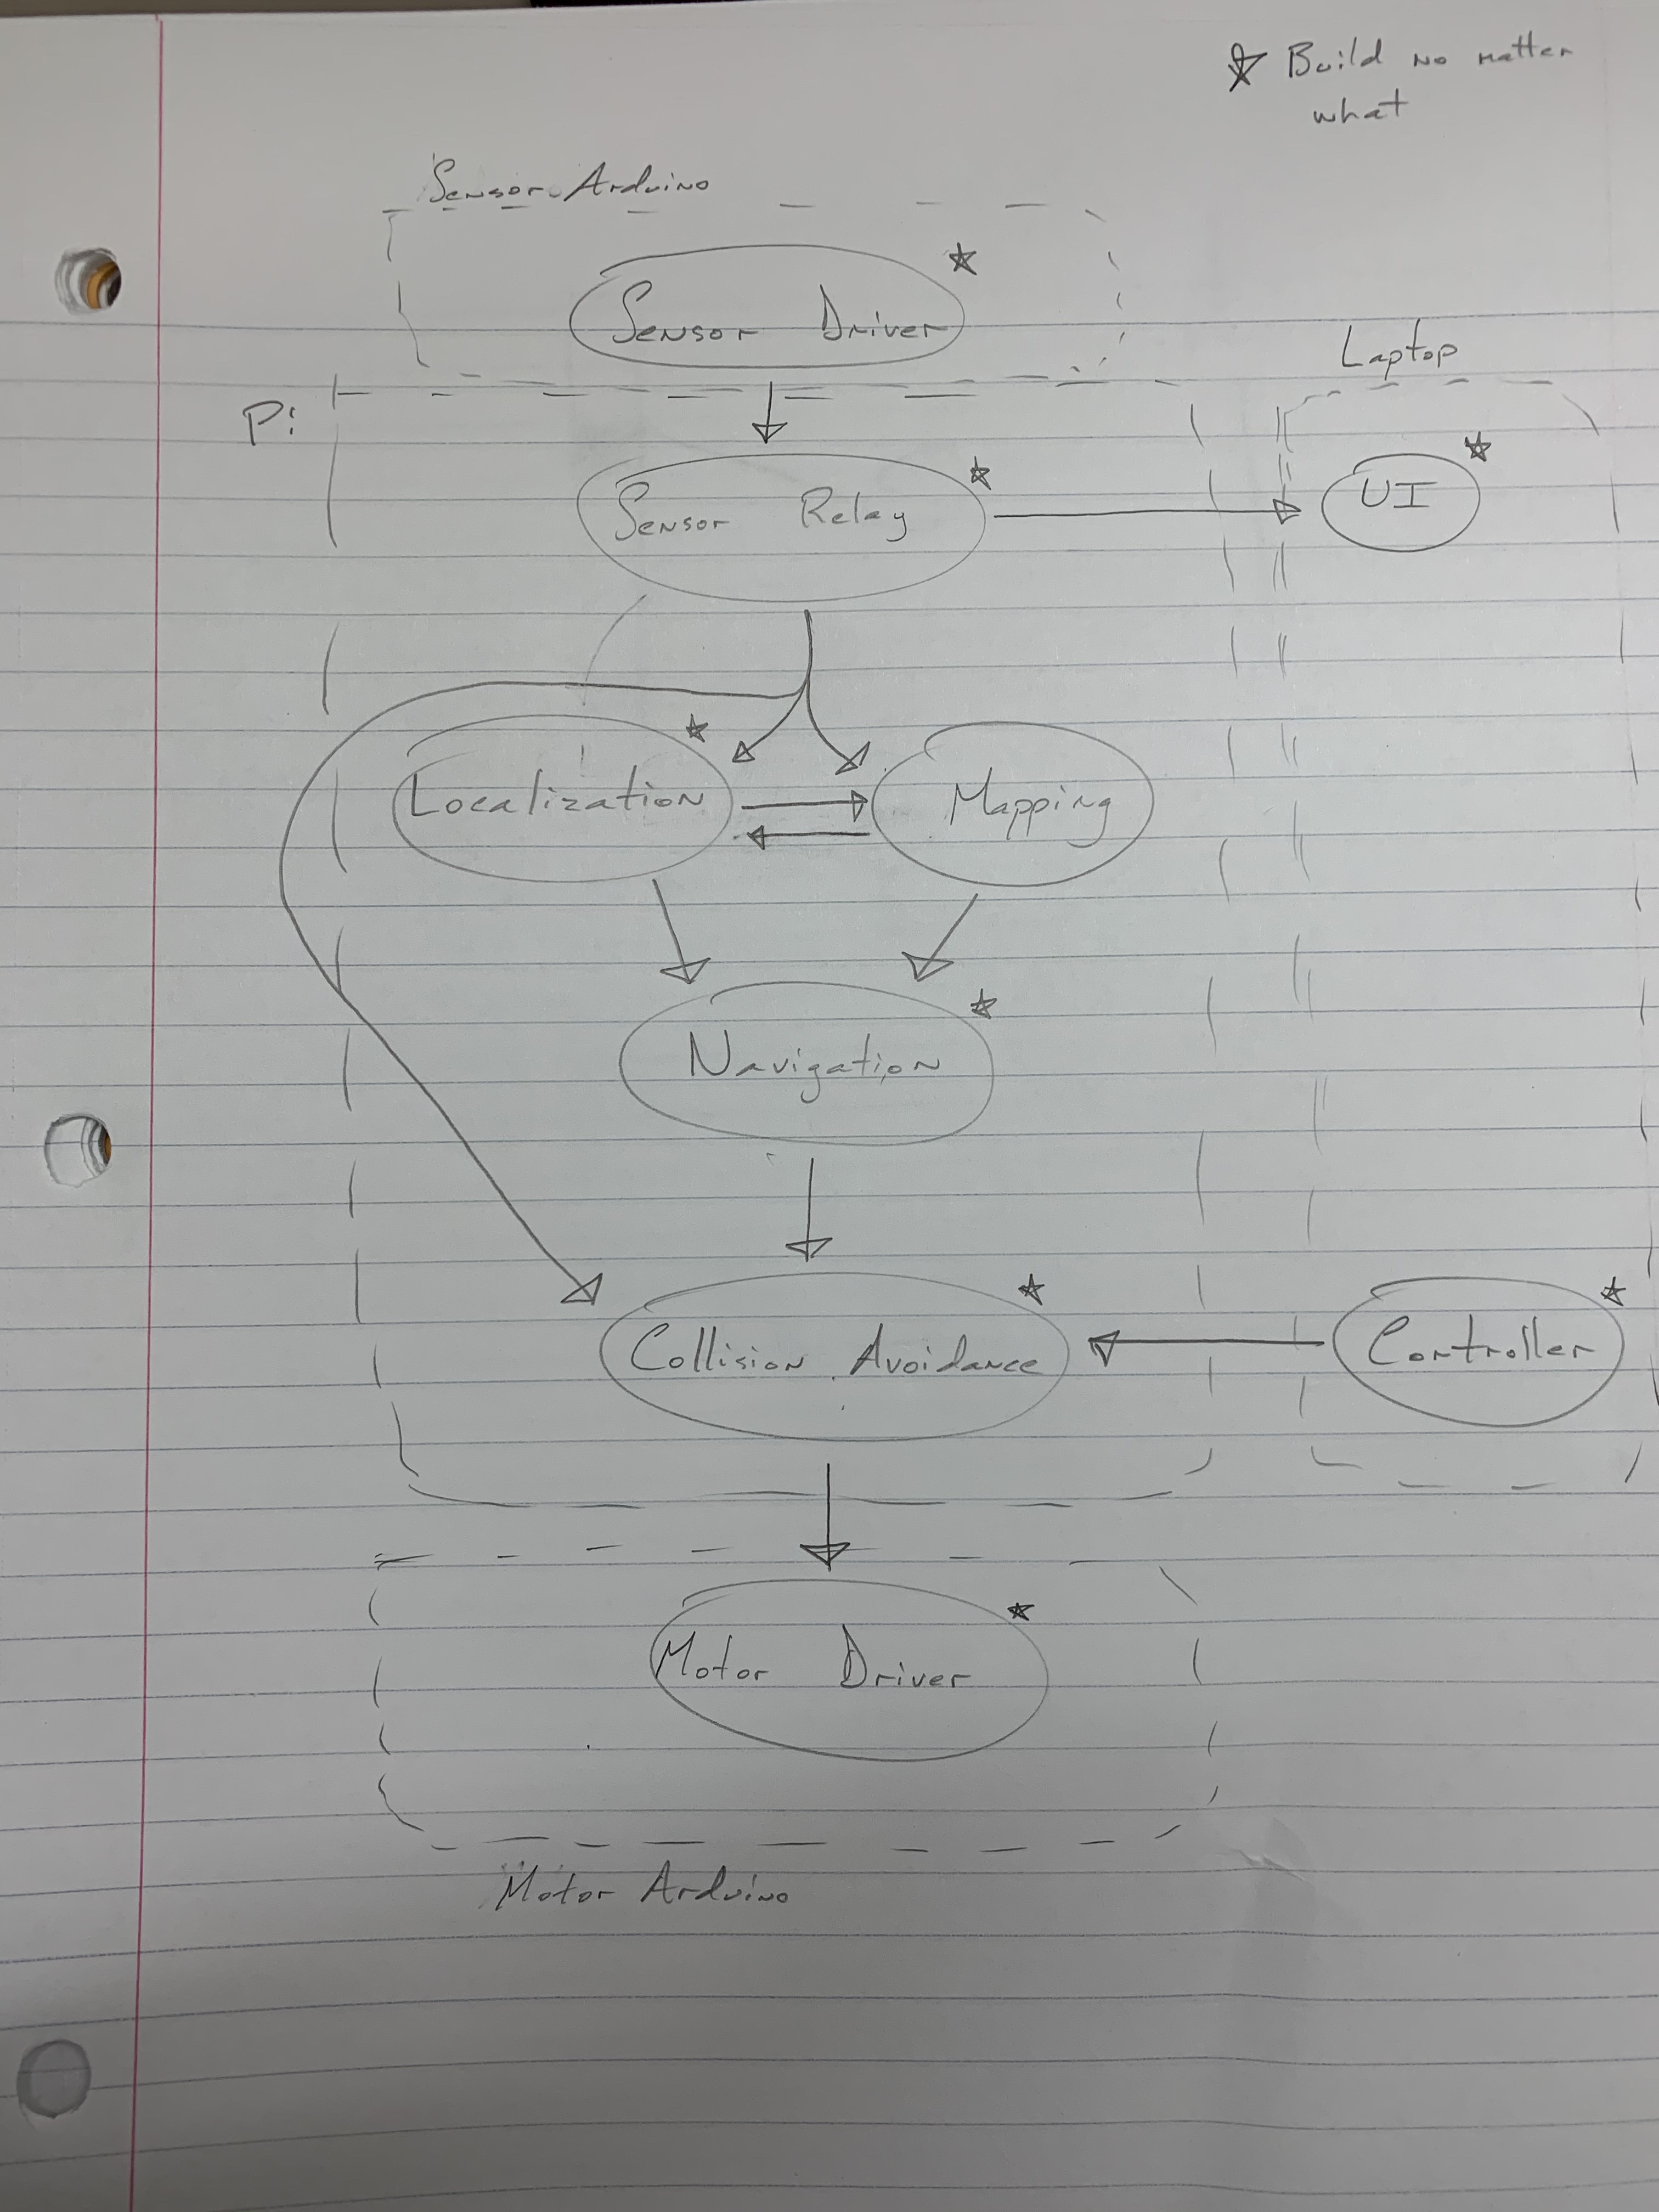 ☆ Build no matter
what
Sensor Arduino
Sensor Driver ☆
Laptop
Pi
Sensor Relay ☆
UI ☆
Localization ☆
Mapping
Navigation ☆
Collision Avoidance ☆
Controller ☆
Motor Driver ☆
Motor Arduino